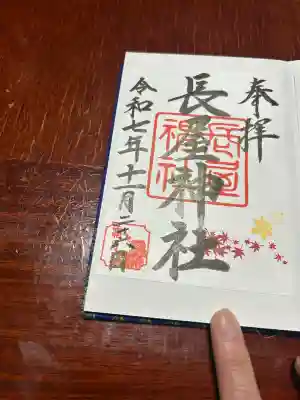 奉拝
長神社
令和七年十一月二日